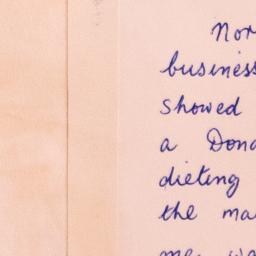 Nor
business
showed
a Dona
dieting
the ma
me wa